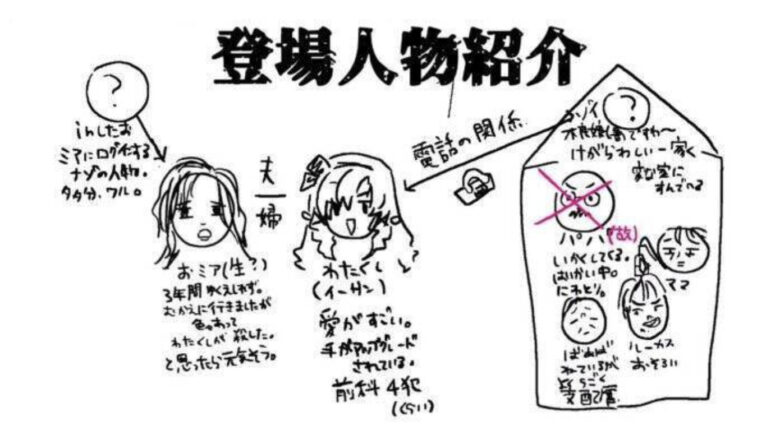 登場人物紹介
?
inしたお
ミアにログインする
ナゾの人物。
多分、ワル。
夫
婦
おミア(生?)
3年間ゆくえしれず。
むかえに行きましたが
色々あって
わたくしが殺しました。
と思ったら元気そう。
わたくし
(イーサン)
愛がすごい。
手がアップグレード
されている。
前科4犯
(くらい)
電話の関係
ゾイ
?
不良娘ですわ〜
けがらわしい一家
すんでる
パパ(故)
いかくしてくる。
はいかい中。
ママ
ルーカス
おそろい
ばぁば
ねているが
支配層